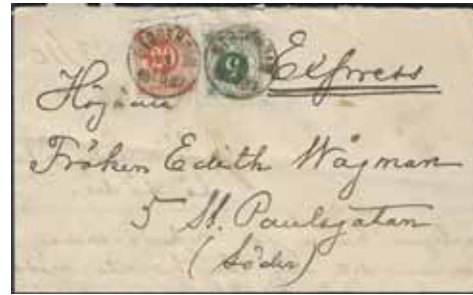 Express
Högädla
Fröken Edith Wågman
5 St. Paulsgatan
(Söder)